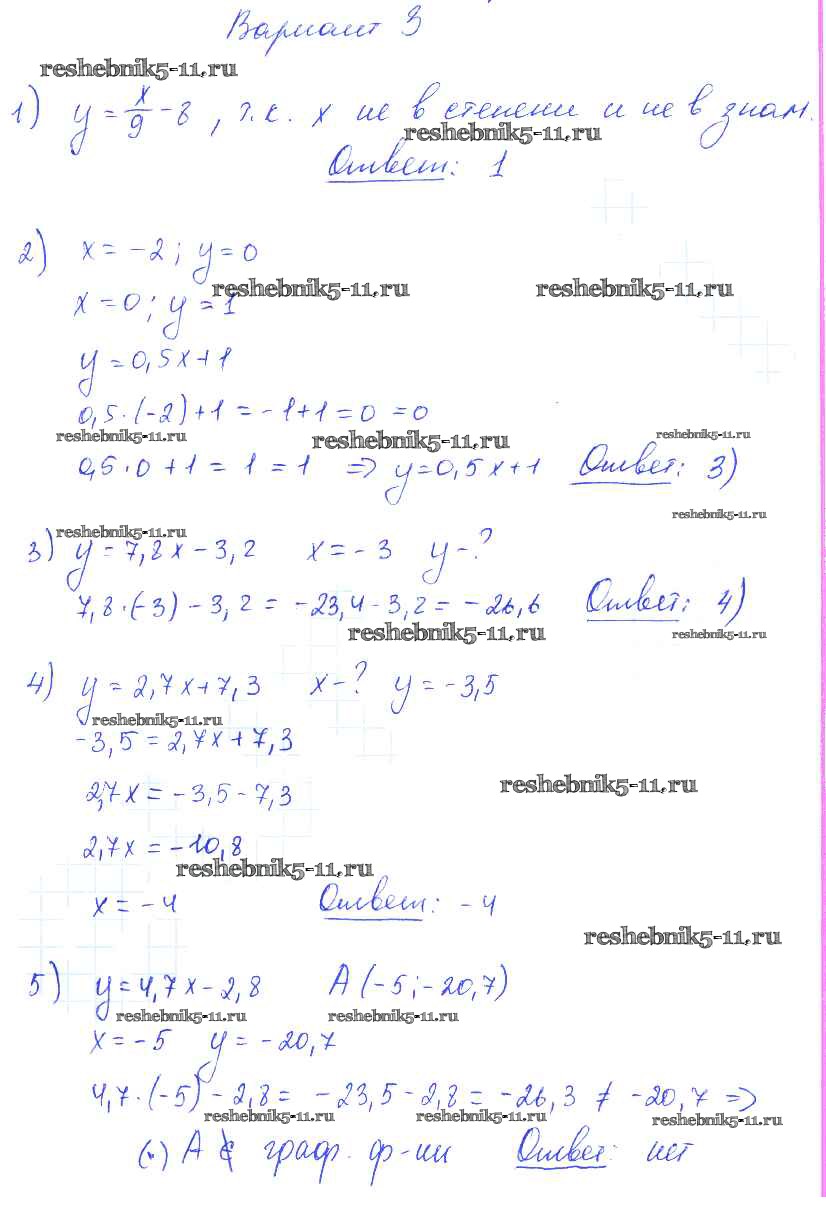 Вариант 3
reshebnik5-11.ru
1) y = x/9 - 8, т.к. x не в степени и не в знам.
reshebnik5-11.ru
Ответ: 1
2) x = -2; y = 0
reshebnik5-11.ru reshebnik5-11.ru
x = 0; y = 1
y = 0,5x+1
0,5·(-2)+1 = -1+1 = 0 = 0
reshebnik5-11.ru reshebnik5-11.ru reshebnik5-11.ru
0,5·0+1 = 1 = 1 => y=0,5x+1 Ответ: 3)
reshebnik5-11.ru
reshebnik5-11.ru
3) y = 7,8x - 3,2 x = -3 y - ?
7,8·(-3) - 3,2 = -23,4 - 3,2 = -26,6 Ответ: 4)
reshebnik5-11.ru reshebnik5-11.ru
4) y = 2,7x+7,3 x - ? y = -3,5
reshebnik5-11.ru
-3,5 = 2,7x+7,3
reshebnik5-11.ru
2,7x = -3,5-7,3
2,7x = -10,8
reshebnik5-11.ru
x = -4 Ответ: -4
reshebnik5-11.ru
5) y = 4,7x - 2,8 A (-5; -20,7)
reshebnik5-11.ru reshebnik5-11.ru
x = -5 y = -20,7
4,7·(-5) - 2,8 = -23,5 - 2,8 = -26,3 ≠ -20,7 =>
reshebnik5-11.ru reshebnik5-11.ru reshebnik5-11.ru
(·) A ∉ граф. ф-ии Ответ: нет